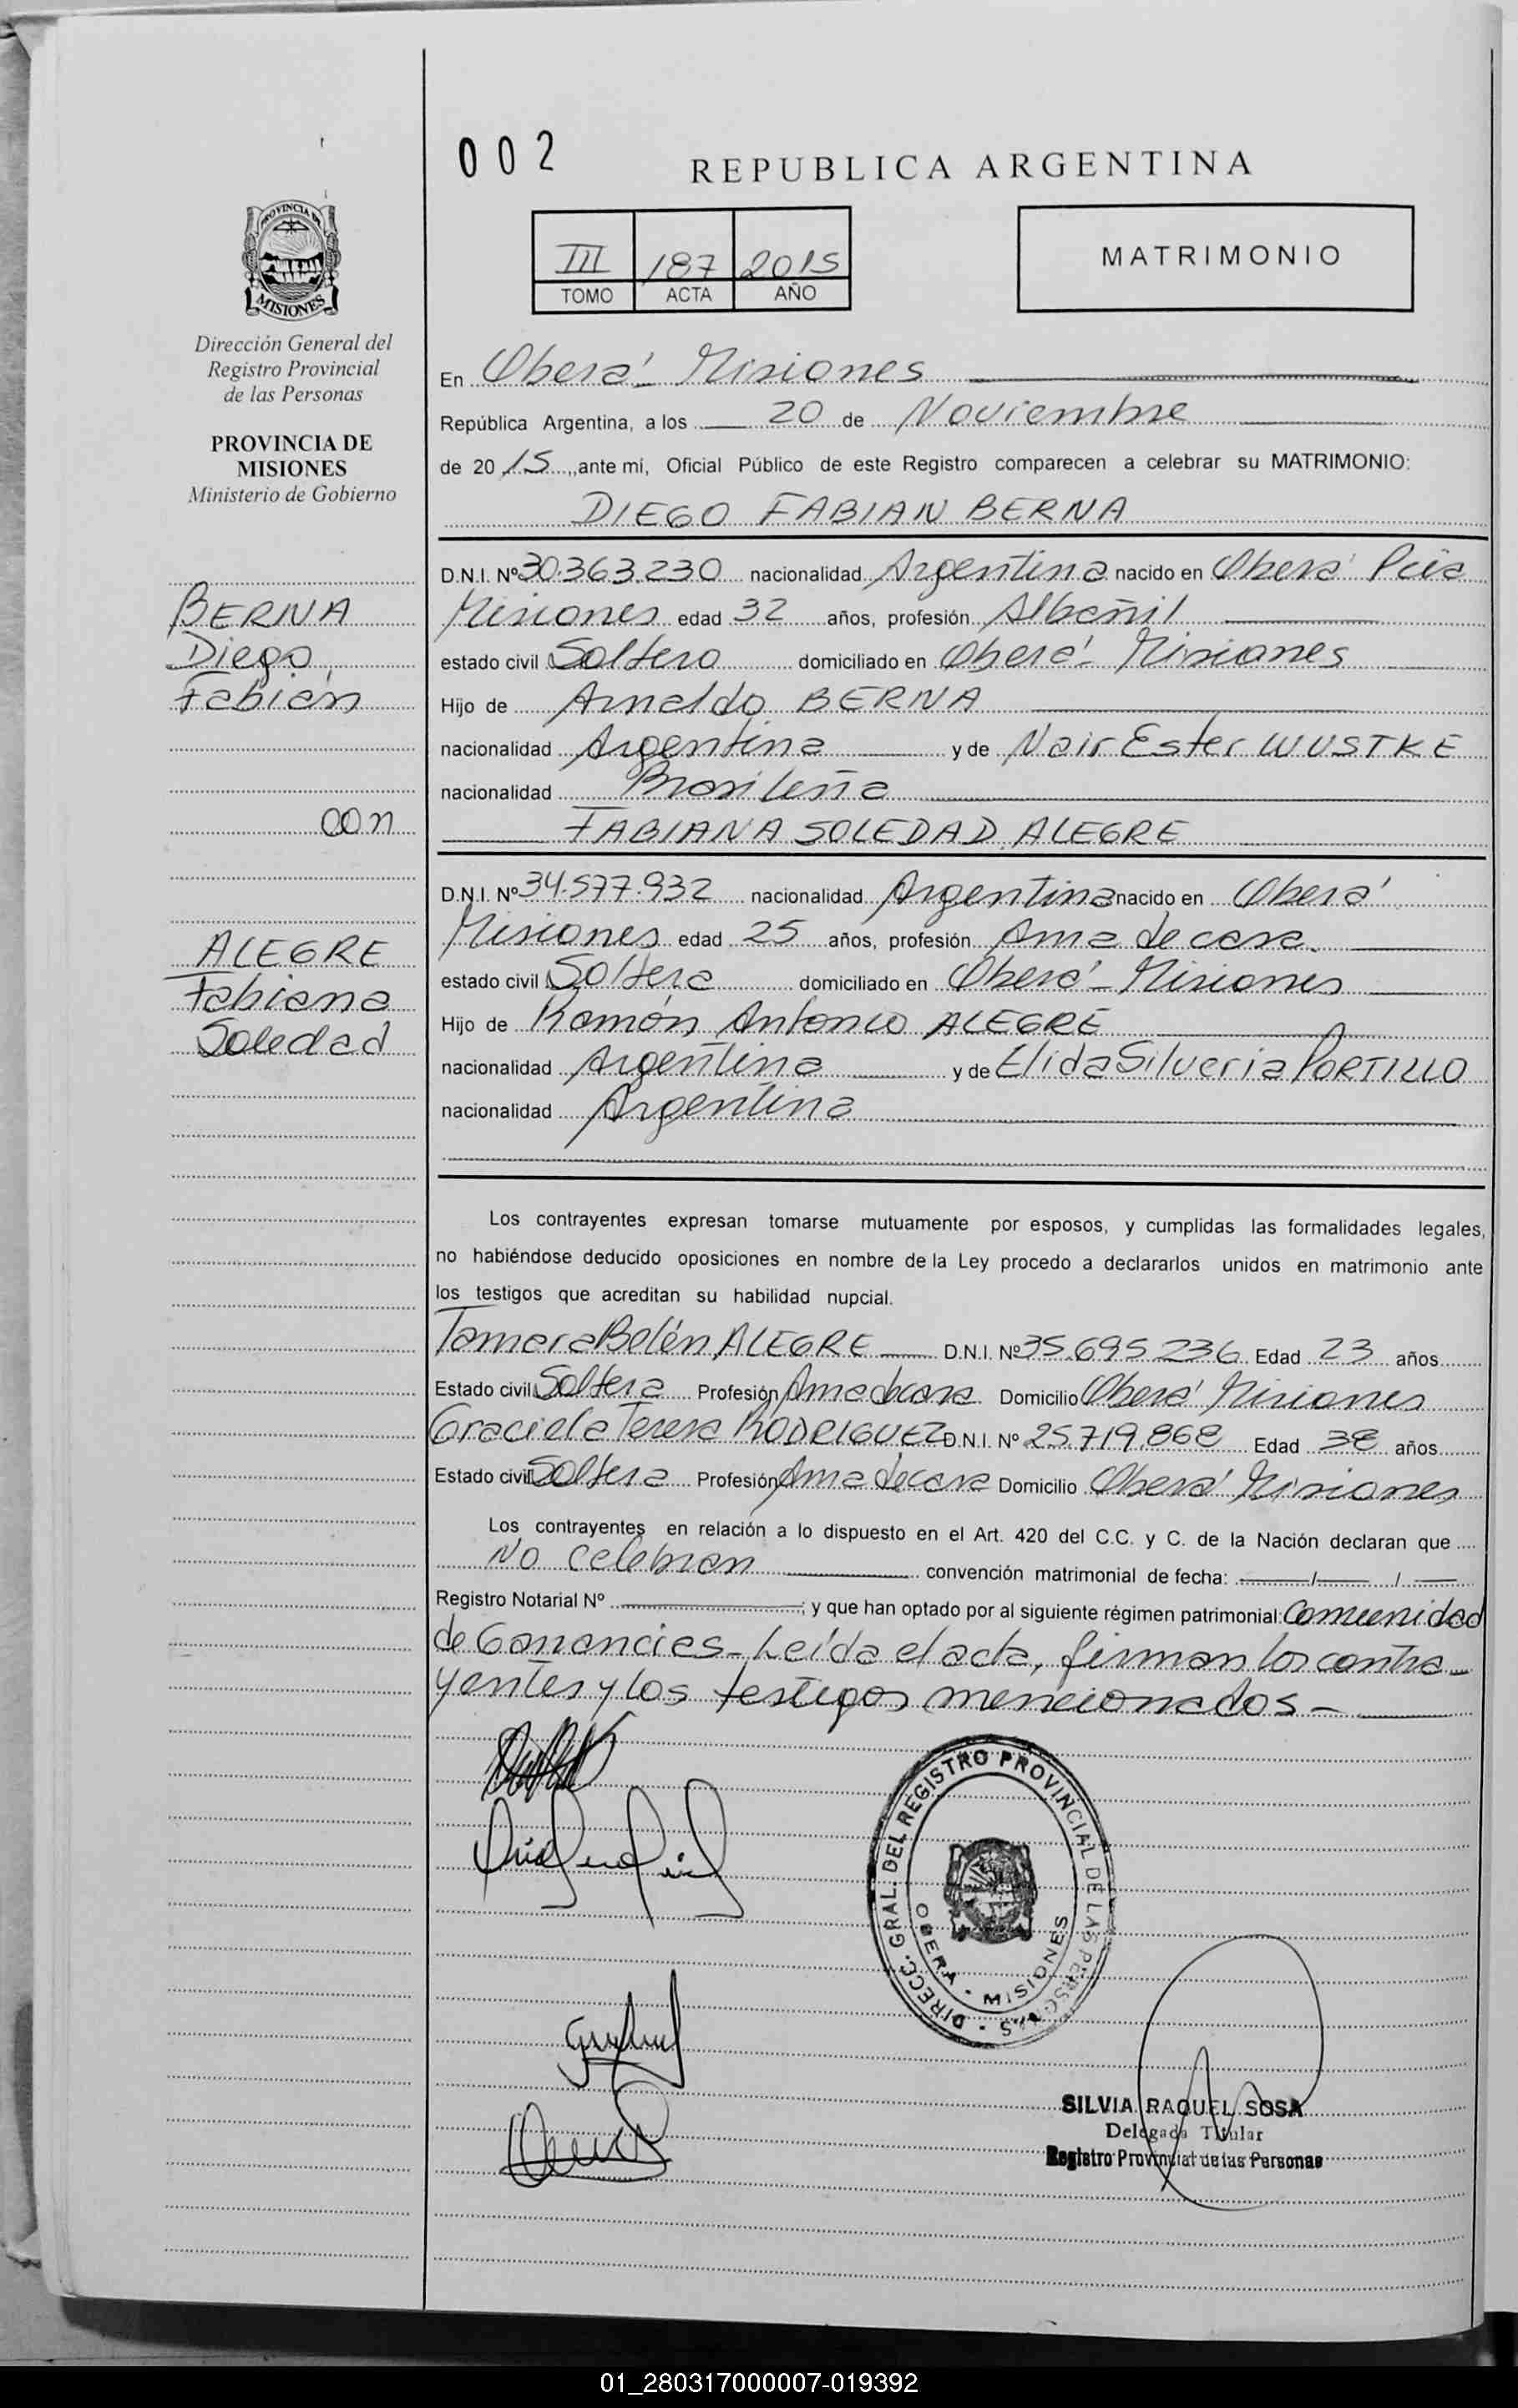 002
REPUBLICA ARGENTINA
PROVINCIA DE
MISIONES
III 187 2015
TOMO ACTA AÑO
MATRIMONIO
Dirección General del
Registro Provincial
de las Personas
PROVINCIA DE
MISIONES
Ministerio de Gobierno
BERNA
Diego
Fabián
con
ALEGRE
Fabiana
Soledad
En Oberá - Misiones
República Argentina, a los 20 de Noviembre
de 20 15, ante mí, Oficial Público de este Registro comparecen a celebrar su MATRIMONIO:
DIEGO FABIAN BERNA
D.N.I. Nº 30.363.230 nacionalidad Argentina nacido en Oberá Pcia
Misiones edad 32 años, profesión Albañil
estado civil Soltero domiciliado en Oberá - Misiones
Hijo de Arnaldo BERNA
nacionalidad Argentina y de Nair Ester WUSTKE
nacionalidad Brasileña
FABIANA SOLEDAD ALEGRE
D.N.I. Nº 34.577.932 nacionalidad Argentina nacido en Oberá
Misiones edad 25 años, profesión Ama de casa.
estado civil Soltera domiciliado en Oberá - Misiones
Hijo de Ramón Antonio ALEGRE
nacionalidad Argentina y de Elida Silveria PORTILLO
nacionalidad Argentina
Los contrayentes expresan tomarse mutuamente por esposos, y cumplidas las formalidades legales,
no habiéndose deducido oposiciones en nombre de la Ley procedo a declararlos unidos en matrimonio ante
los testigos que acreditan su habilidad nupcial.
Tamara Belén ALEGRE D.N.I. Nº 35.695.236 Edad 23 años
Estado civil Soltera Profesión Ama de casa Domicilio Oberá Misiones
Graciela Teresa RODRIGUEZ D.N.I. Nº 25.719.868 Edad 38 años
Estado civil Soltera Profesión Ama de casa Domicilio Oberá Misiones
Los contrayentes en relación a lo dispuesto en el Art. 420 del C.C. y C. de la Nación declaran que
No celebran convención matrimonial de fecha: / /
Registro Notarial Nº ; y que han optado por al siguiente régimen patrimonial: Comunidad
de Ganancias - Leída el acta, firman los contra-
yentes y los testigos mencionados -
DIRECC. GRAL. DEL REGISTRO PROVINCIAL DE LAS PERSONAS
OBERA - MISIONES
SILVIA RAQUEL SOSA
Delegada Titular
Registro Provincial de las Personas
01_280317000007-019392